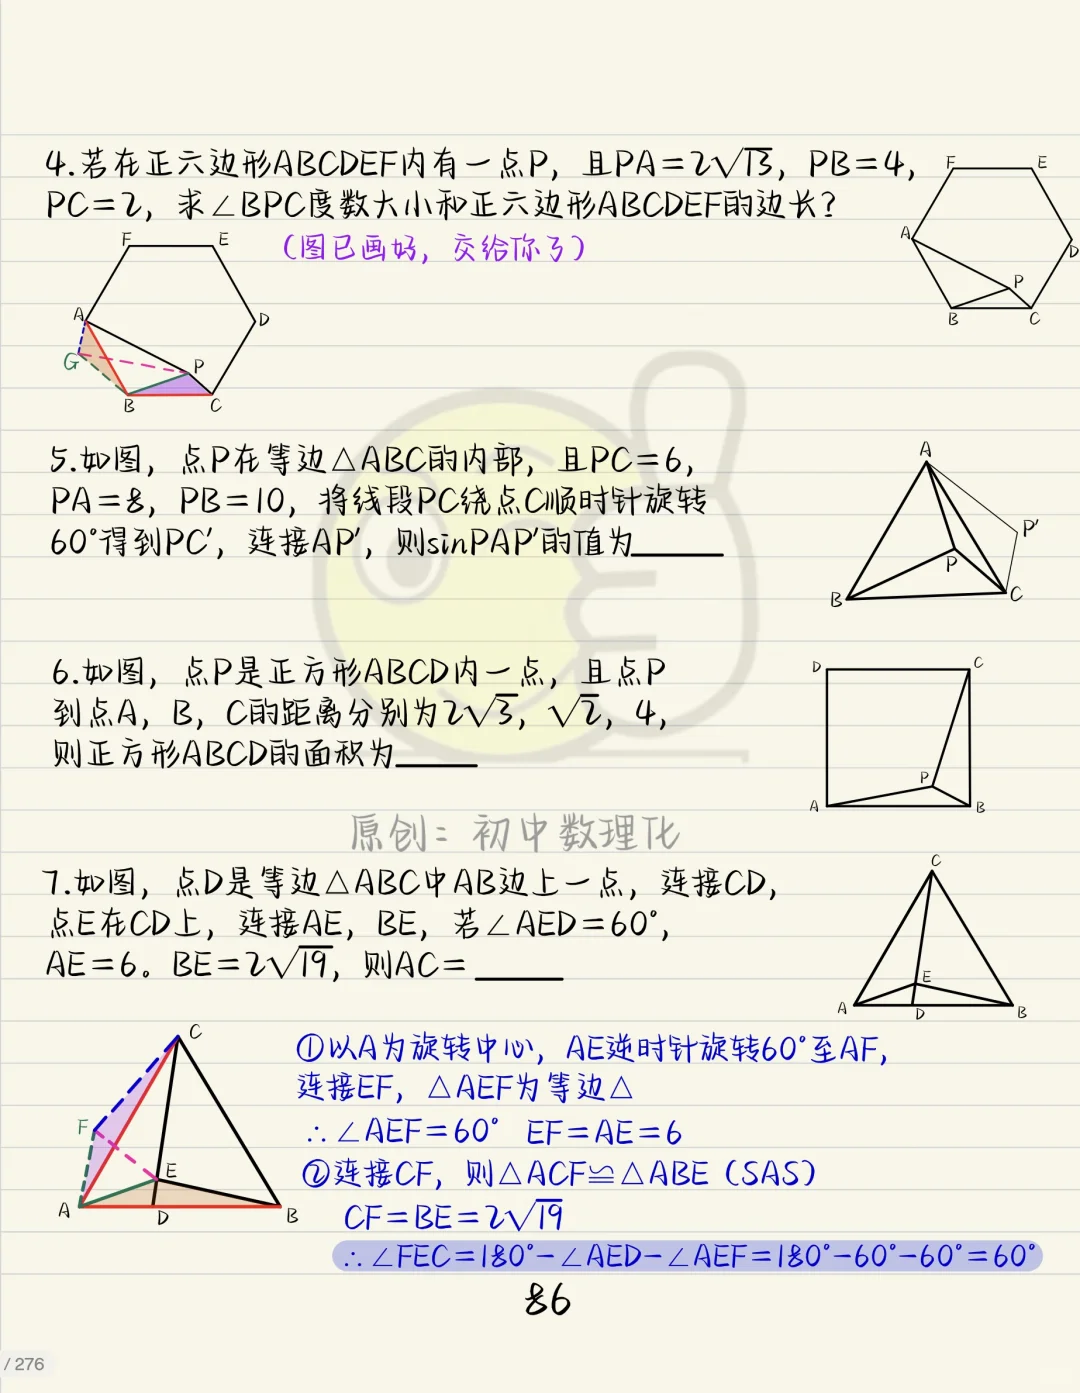 4.若在正六边形ABCDEF内有一点P，且PA=2√13，PB=4，
PC=2，求∠BPC度数大小和正六边形ABCDEF的边长？
（图已画好，交给你了）
F E
A D
G P
B C
F E
A D
P
B C
5.如图，点P在等边△ABC的内部，且PC=6，
PA=8，PB=10，将线段PC绕点C顺时针旋转
60°得到PC′，连接AP′，则sinPAP′的值为______
A
P′
P
B C
6.如图，点P是正方形ABCD内一点，且点P
到点A，B，C的距离分别为2√3，√2，4，
则正方形ABCD的面积为______
D C
P
A B
原创：初中数理化
7.如图，点D是等边△ABC中AB边上一点，连接CD，
点E在CD上，连接AE，BE，若∠AED=60°，
AE=6。BE=2√19，则AC=______
C
E
A D B
C
F
E
A D B
①以A为旋转中心，AE逆时针旋转60°至AF，
连接EF，△AEF为等边△
∴∠AEF=60° EF=AE=6
②连接CF，则△ACF≌△ABE（SAS）
CF=BE=2√19
∴∠FEC=180°-∠AED-∠AEF=180°-60°-60°=60°
86
/ 276